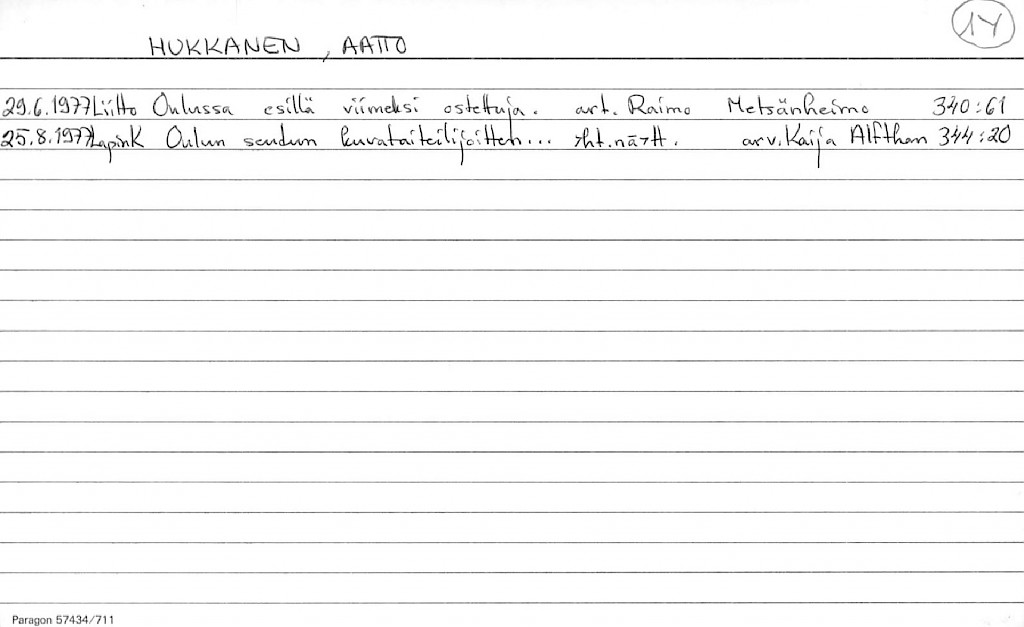 14
HUKKANEN, AATTO
29.6.1977 Liitto Oulussa esillä viimeksi ostettuja. art. Raimo Metsänheimo 340:61
25.8.1977 LapinK Oulun seudun kuvataiteilijoitten... yht.näytt. arv. Kaija Alfthan 344:20
Paragon 57434/711